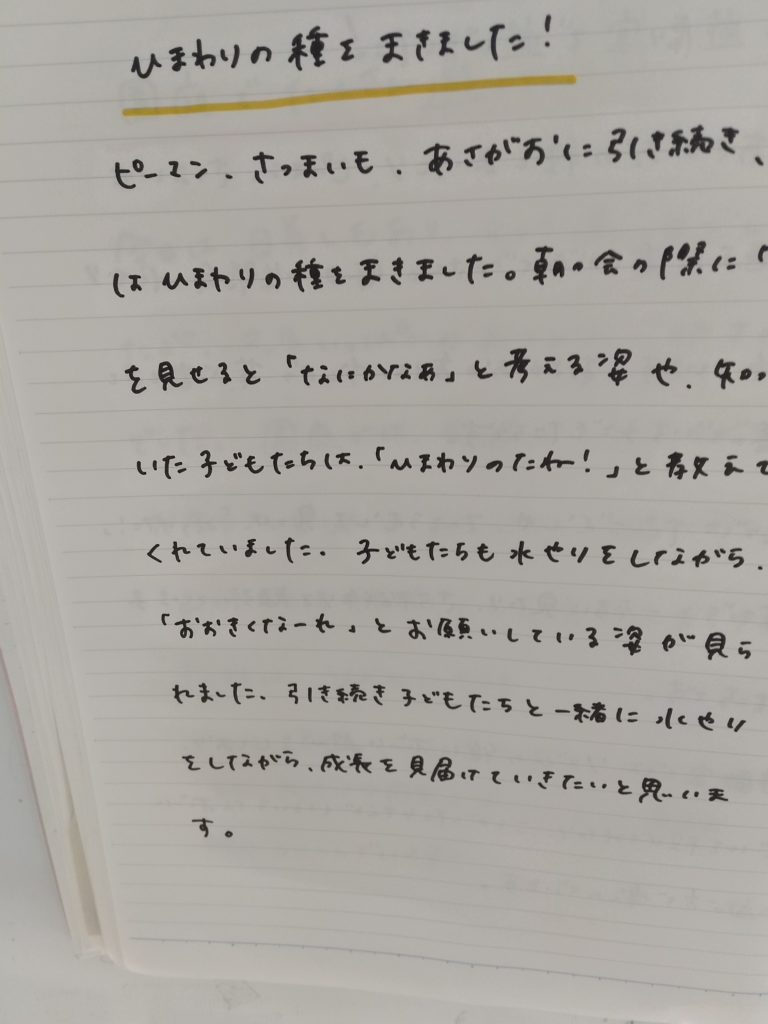 ひまわりの種をまきました!
ピーマン、さつまいも、あさがおに引き続き、
はひまわりの種をまきました。朝の会の際に「
を見せると「なにかなぁ」と考える姿や、知っ
いた子どもたちは、「ひまわりのたねー!」と教えて
くれていました。子どもたちも水やりをしながら、
「おおきくなーれ」とお願いしている姿が見ら
れました。引き続き子どもたちと一緒に水やり
をしながら、成長を見届けていきたいと思いま
す。